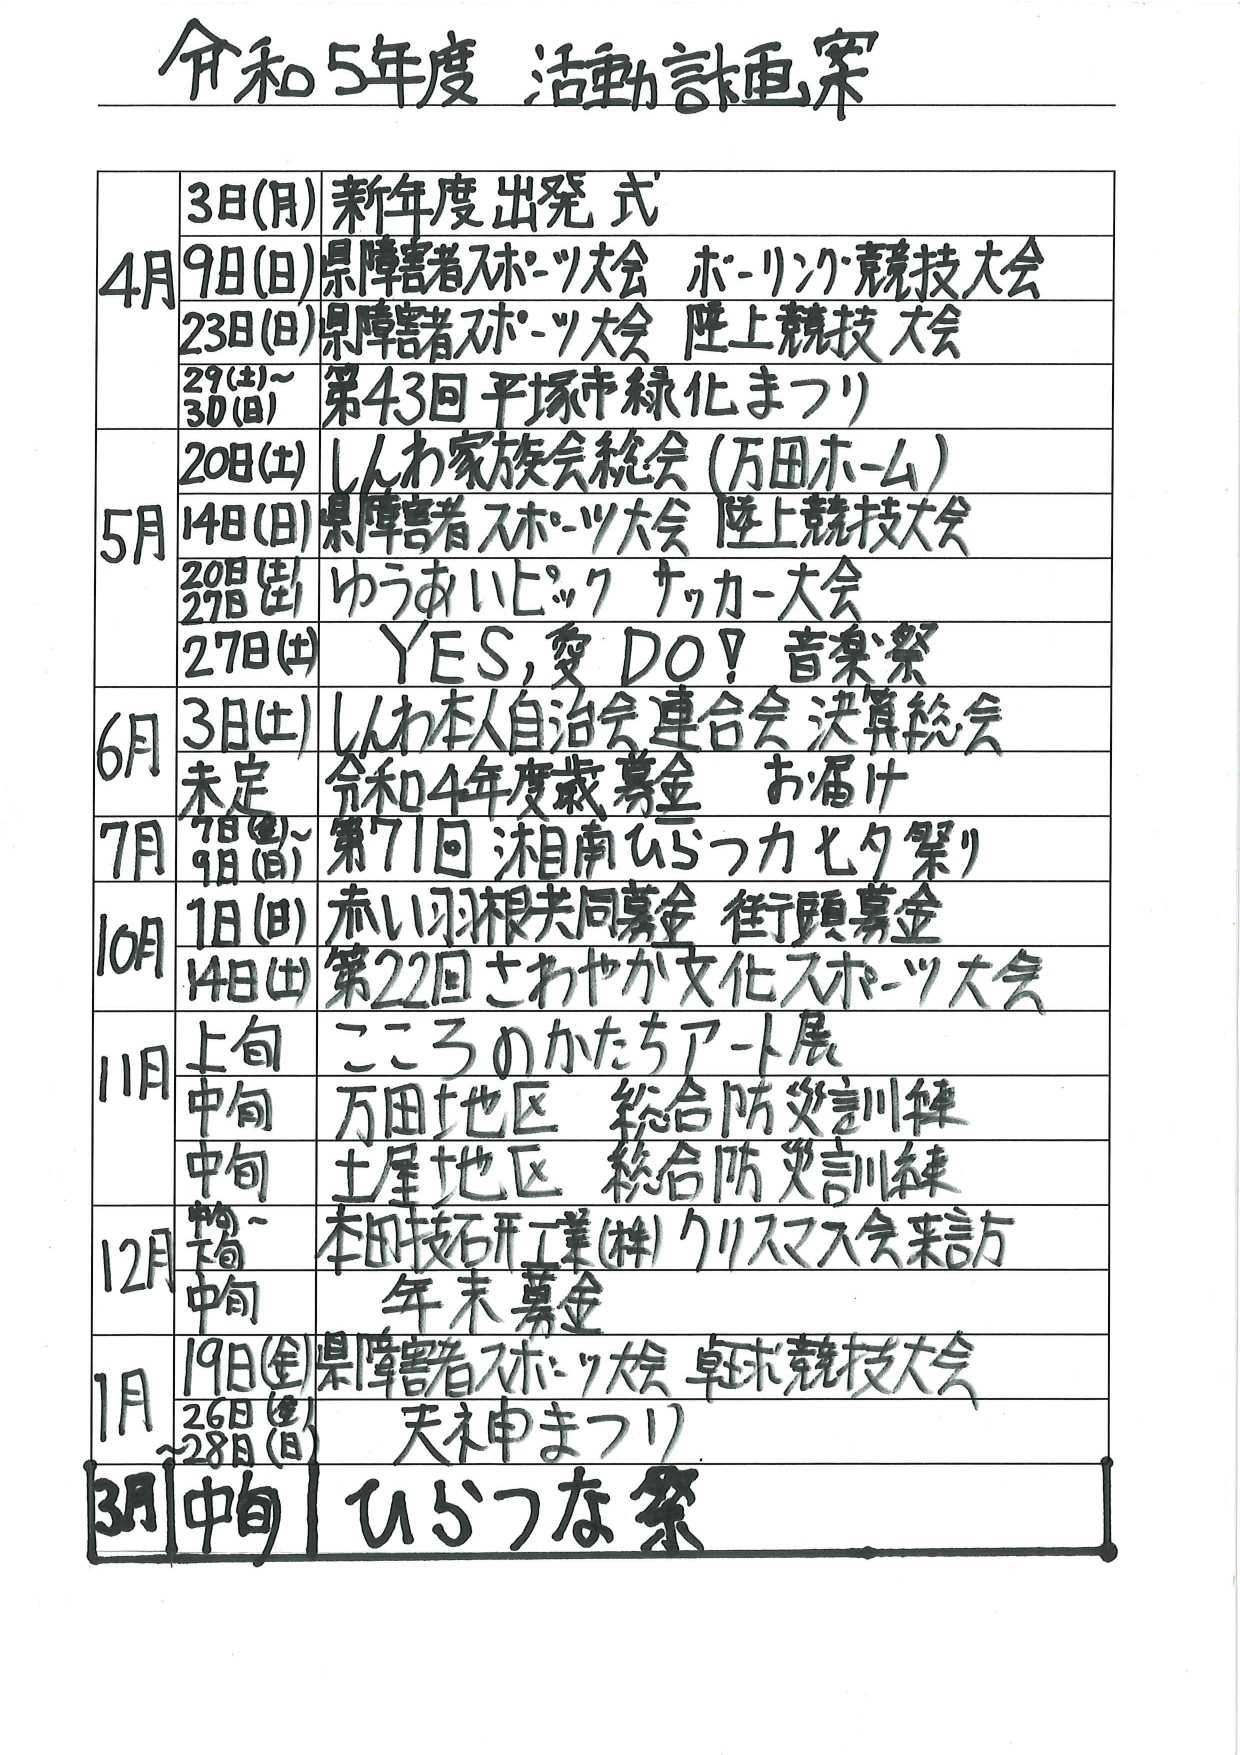 令和5年度 活動計画案
4月
3日(月) 新年度出発式
9日(日) 県障害者スポーツ大会 ボーリング競技大会
23日(日) 県障害者スポーツ大会 陸上競技大会
29(土)~
30(日)
第43回平塚市緑化まつり
5月
20日(土) しんわ家族会総会(万田ホーム)
14日(日) 県障害者スポーツ大会 陸上競技大会
20日(土)
27日(土)
ゆうあいピック サッカー大会
27日(土) YES,愛DO! 音楽祭
6月
3日(土) しんわ本人自治会連合会 決算総会
未定 令和4年度歳募金 お届け
7月
7日(金)~
9日(日)
第71回湘南ひらつカ七夕祭り
10月
1日(日) 赤い羽根共同募金 街頭募金
14日(土) 第22回さわやか文化スポーツ大会
11月
上旬 こころのかたちアート展
中旬 万田地区 総合防災訓練
中旬 土屋地区 総合防災訓練
12月
中旬~
下旬
本田技石研工業(株)クリスマス会来訪
中旬 年末募金
1月
19日(金) 県障害者スポーツ大会 卓球競技大会
26日(金)
~28日(日)
天神まつり
3月
中旬 ひらつな祭